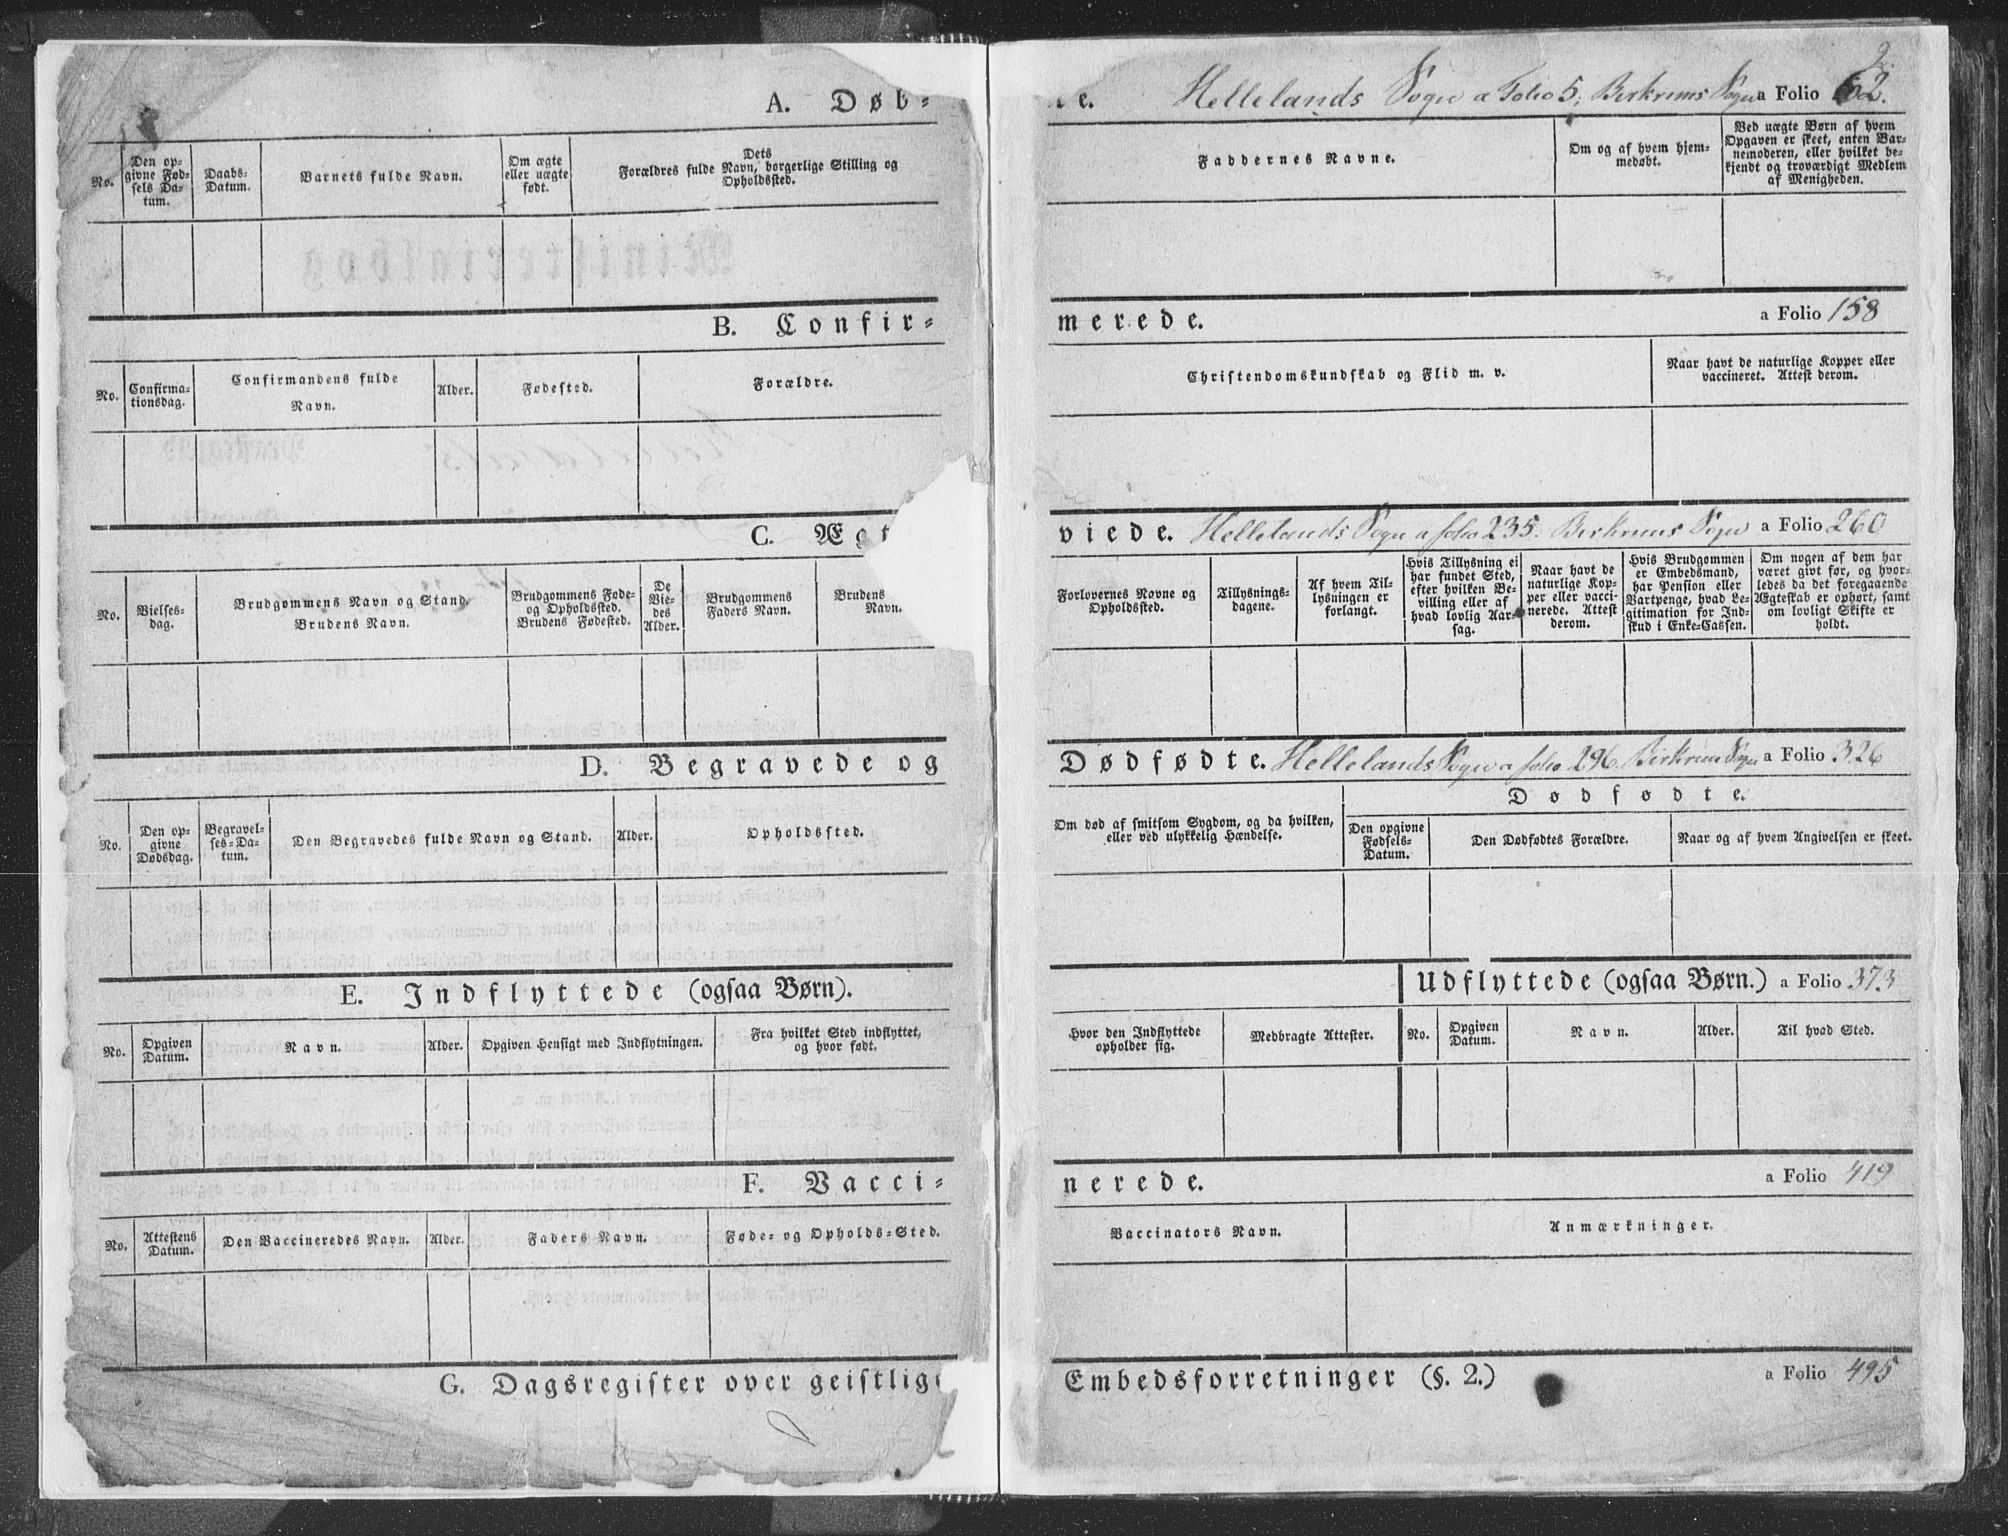 A. Døb=
te. Hellelands Sogn a Folio 5, Birkrems Sogn a Folio 62.
2.
No.
Den op-
givne Fød-
sels Da-
tum.
Daabs-
Datum.
Barnets fulde Navn.
Om ægte
eller uægte
født.
Dets
Forældres fulde Navn, borgerlige Stilling og
Opholdssted.
Faddernes Navne.
Om og af hvem hjem-
medøbt.
Ved uægte Børn af hvem
Opgaven er skeet, enten Bar-
nemoderen, eller hvilket be-
kjendt og troværdigt Medlem
af Menigheden.
B. Confir=
merede. a Folio 158
No.
Confirma-
tionsdag.
Confirmandens fulde
Navn.
Alder.
Fødested.
Forældre.
Christendomskundskab og Flid m. v.
Naar havt de naturlige Kopper eller
vaccineret. Attest derom.
C. Ægt
viede. Hellelands Sogn a folio 235. Birkrems Sogn a Folio 260
No.
Vielses-
dag.
Brudgommens Navn og Stand.
Brudens Navn.
Brudgommens Føde-
og Opholdssted.
Brudens Fødested.
De
Vie-
des
Alder.
Brudgommens
Faders Navn.
Brudens
Navn.
Forlovernes Navne og
Opholdssted.
Tillysnings-
dagene.
Af hvem Til-
lysningen er
forlangt.
Hvis Tillysning ei
har fundet Sted,
efter hvilken Be-
villing eller af
hvad lovlig Aar-
sag.
Naar havt de
naturlige Kop-
per eller vacci-
nerede. Attest
derom.
Hvis Brudgommen
er Embedsmand,
har Pension eller
Vartpenge, hvad Le-
gitimation for Ind-
skud i Enke-Cassen.
Om nogen af dem har
været givt før, og hvor-
ledes da det foregaaende
Ægteskab er ophørt, samt
om lovligt Skifte er
holdt.
D. Begravede og
Dødfødte. Hellelands Sogn a folio 296. Birkrems Sogn a Folio 326
No.
Den op-
givne
Dødsdag.
Begravel-
ses-Da-
tum.
Den Begravedes fulde Navn og Stand.
Alder.
Opholdssted.
Om død af smitsom Sygdom, og da hvilken,
eller ved ulykkelig Hændelse.
Dødfødte.
Den opgivne
Fødsels-
Datum.
Den Dødfødtes Forældre.
Naar og af hvem Angivelsen er skeet.
E. Indflyttede (ogsaa Børn).
Udflyttede (ogsaa Børn.) a Folio 373
No.
Opgiven
Datum.
Navn.
Alder.
Opgiven Hensigt med Indflytningen.
Fra hvilket Sted indflyttet,
og hvor født.
Hvor den Indflyttede
opholder sig.
Medbragte Attester.
No.
Opgiven
Datum.
Navn.
Alder.
Til hvad Sted.
F. Vacci=
nerede. a Folio 419
No.
Attestens
Datum.
Den Vaccineredes Navn.
Alder.
Faders Navn.
Føde- og Opholds-Sted.
Vaccinators Navn.
Anmærkninger.
G. Dagsregister over geistlige
Embedsforretninger (§. 2.) a Folio 495